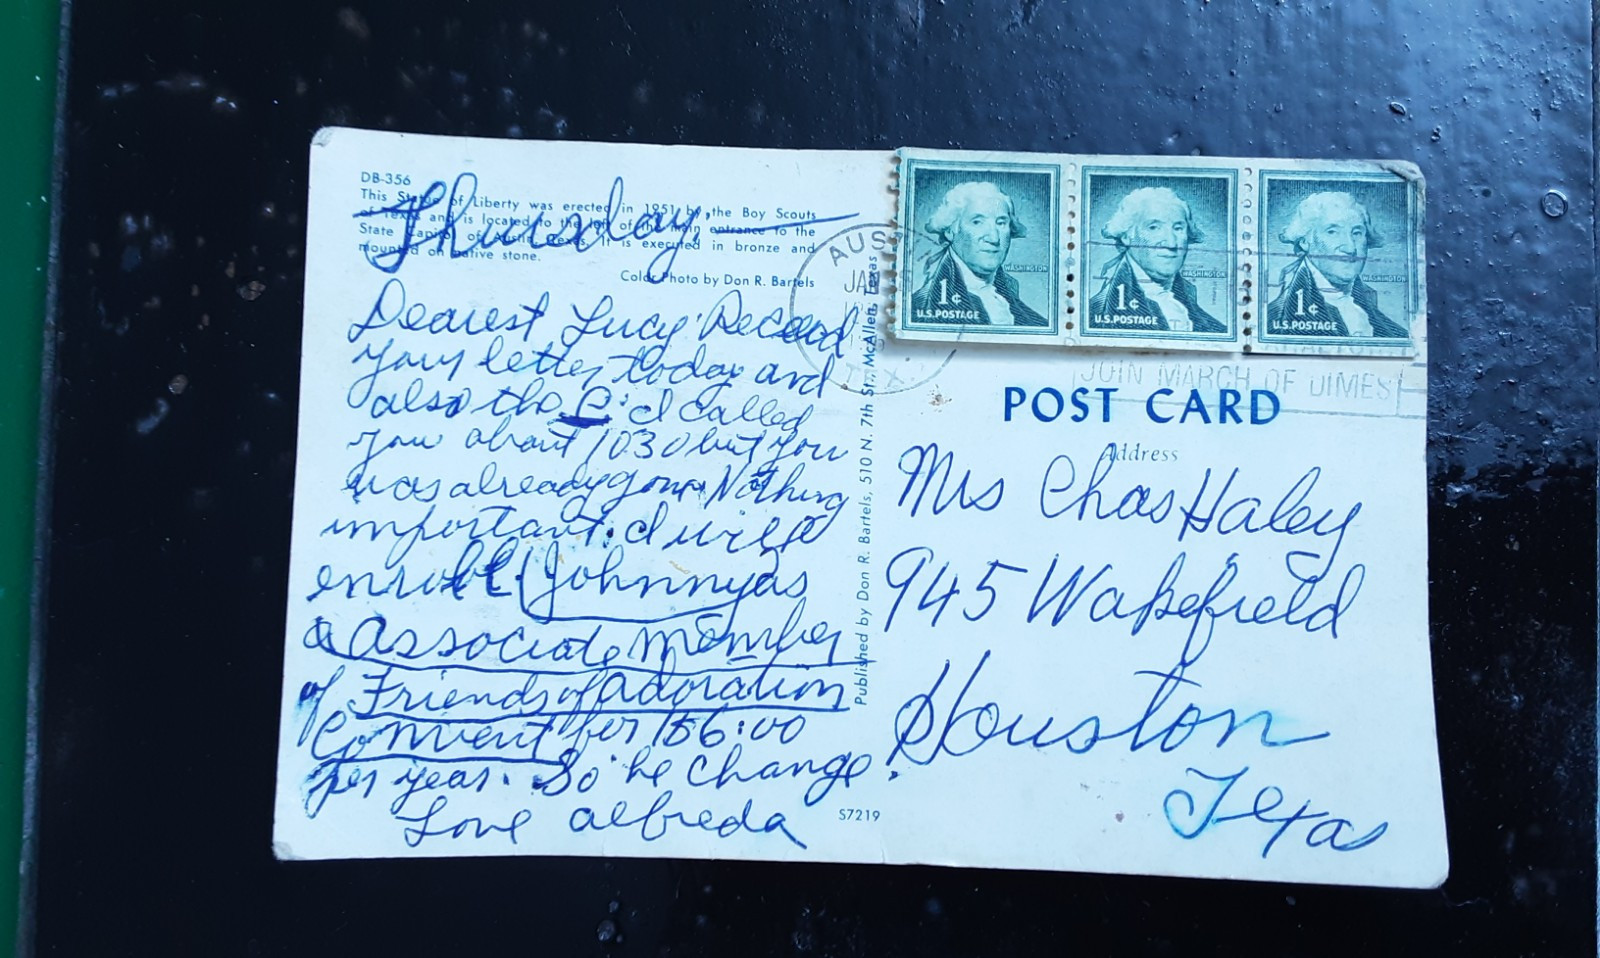 DB-356
This Statue of Liberty was erected in 1951 by the Boy Scouts
of Texas and is located to the left of the main entrance to the
State Capitol of Austin, Texas. It is executed in bronze and
mounted on native stone.
Color Photo by Don R. Bartels
Thursday,
Dearest Lucy: Received
your letter today and
also the C. I called
you about 1030 but you
was already gone Nothing
important. I will
enroll (Johnny as
a Associate member
of Friends of adoration
Convent for 6:00
per year. So he change.
Love alfreda
S7219
Published by Don R. Bartels, 510 N. 7th St., McAllen, Texas
AUS
JAN
TEX
WASHINGTON
1¢
U.S. POSTAGE
WASHINGTON
1¢
U.S. POSTAGE
WASHINGTON
1¢
U.S. POSTAGE
JOIN MARCH OF DIMES
POST CARD
Address
Mrs Chas Haley
945 Wakefield
Houston
Texas